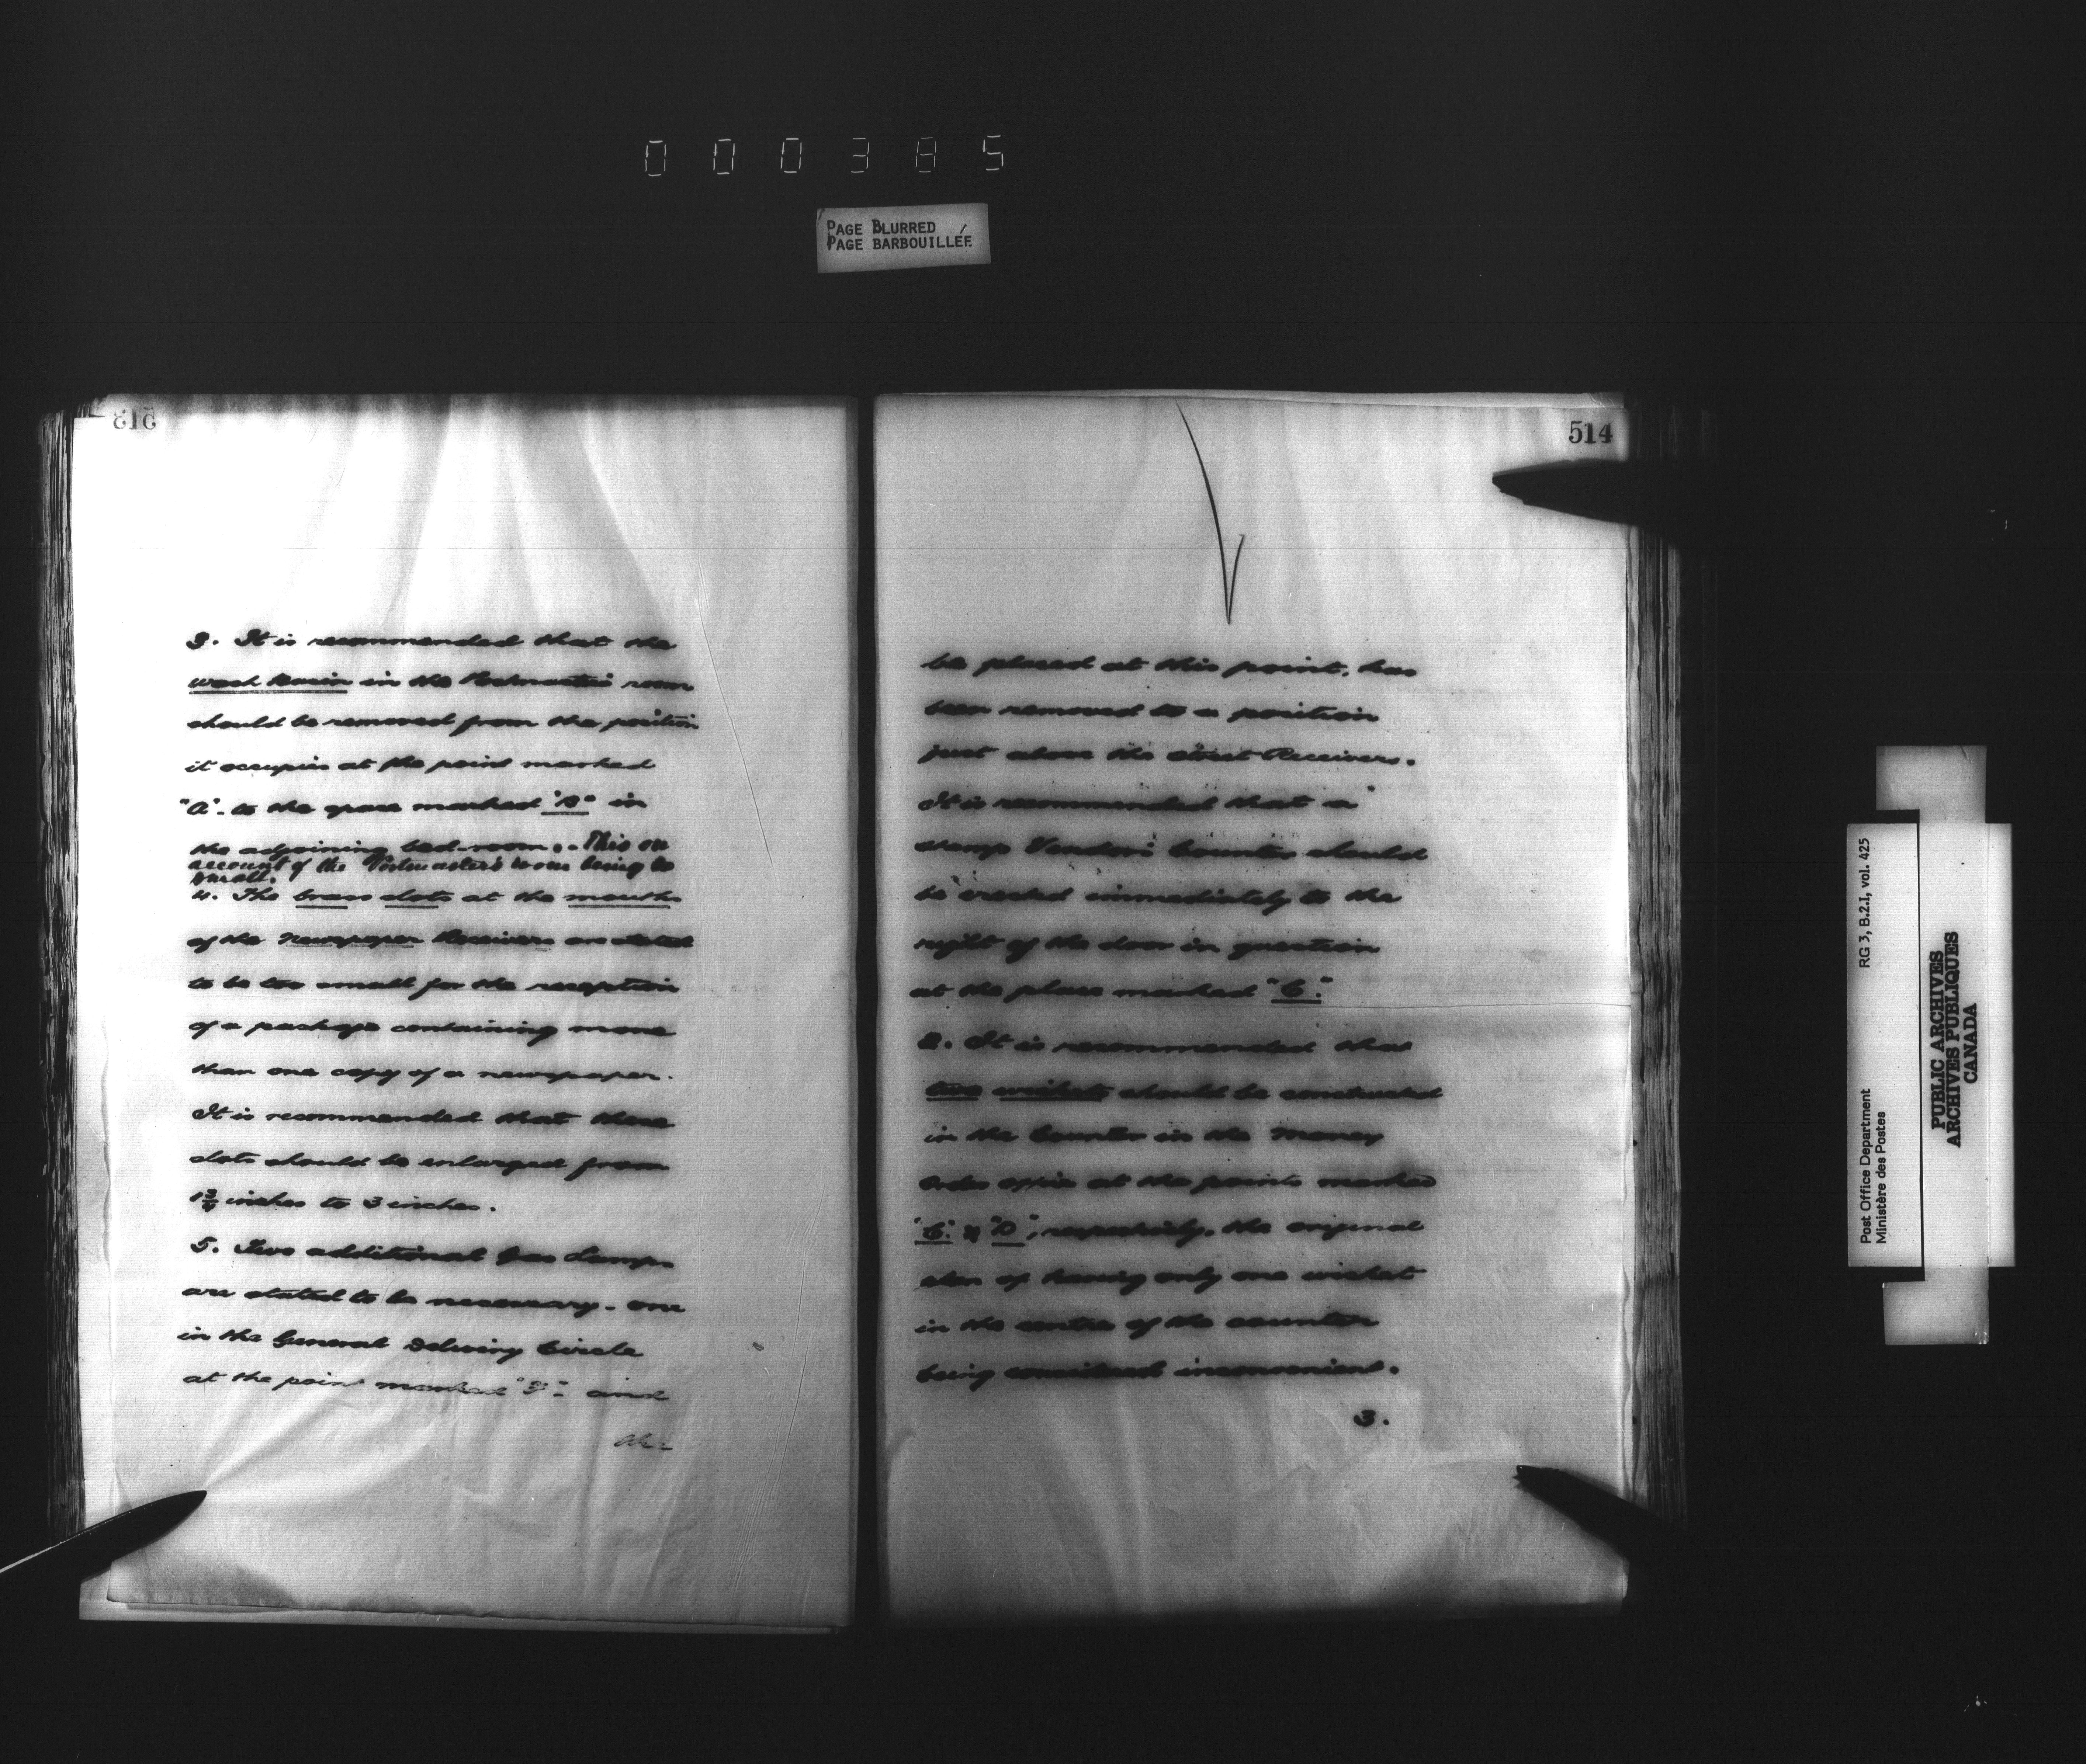 000385
PAGE BLURRED
PAGE BARBOUILLÉE
515
3. It is recommended that the
wash basin in the Postmaster's room
should be removed from the position
it occupies at the point marked
"A" - to the space marked "B" in
the adjoining bed-room. - This on
account of the Postmaster's room being so
small.
4. The brass slots at the mouths
of the newspaper Receivers are stated
to be too small for the reception
of a package containing more
than one copy of a newspaper.
It is recommended that these
slots should be enlarged from
1 3/4 inches to 3 inches.
5. Two additional Gas Lamps
are stated to be necessary - one
in the General Delivery Circle
at the point marked "F" - and
514
be placed at this point, has
been removed to a position
just above the street Receivers.
It is recommended that a
stamp Vendor's Counter should
be erected immediately to the
right of the door in question
at the place marked "C."
2. It is recommended that
two wickets should be constructed
in the Counter in the Money
Order Office at the points marked
"C" & "D", respectively, the original
plan of having only one wicket
in the centre of the counter
being considered inconvenient.
3.
Post Office Department
Ministère des Postes
RG 3, B.2.I, vol. 425
PUBLIC ARCHIVES
ARCHIVES PUBLIQUES
CANADA